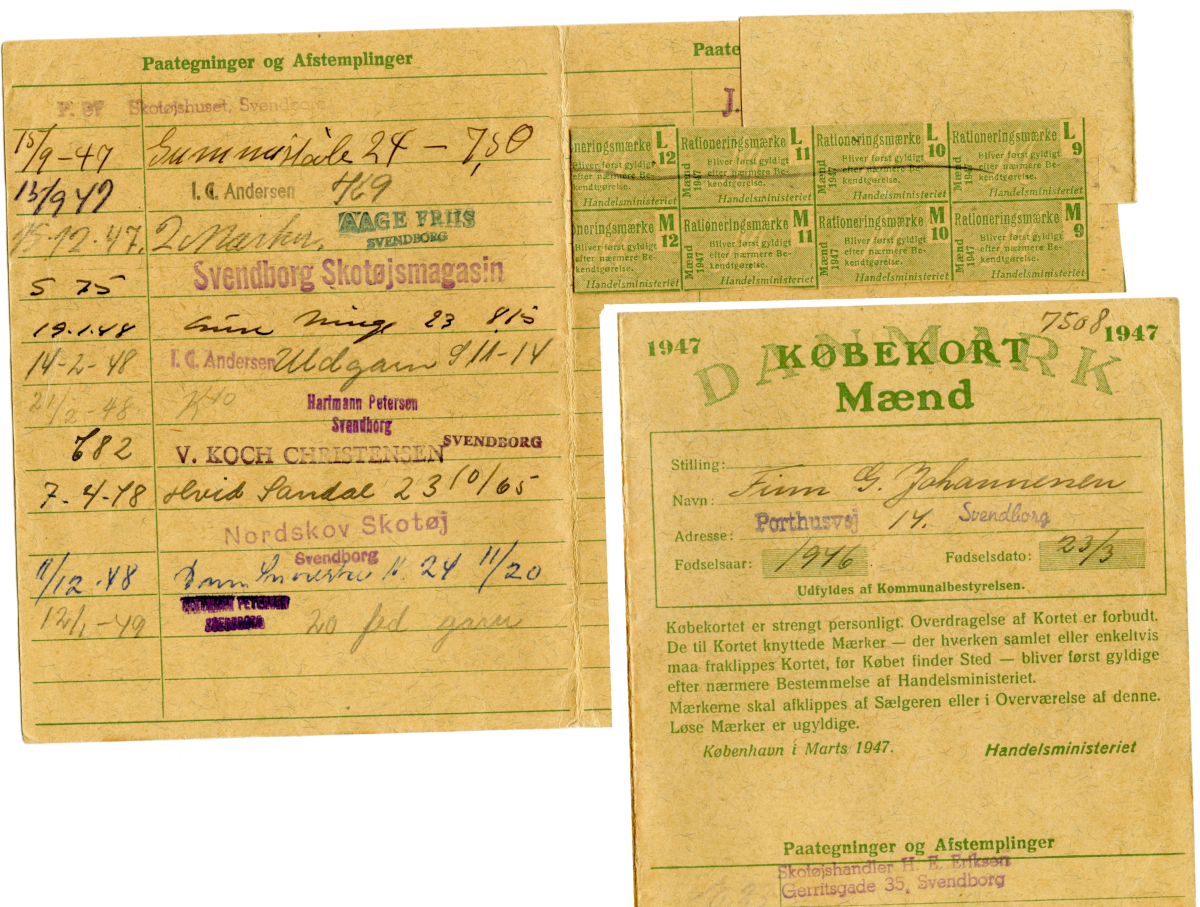 Paategninger og Afstemplinger
Skotøjshuset, Svendborg
15/9-47 24 - 7,50
15/9 47 I. C. Andersen
15-12-47. 2 Mærker. AAGE FRIIS
SVENDBORG
Svendborg Skotøjsmagasin
5 75
19.1.48 23 815
14-2-48 I. C. Andersen Uldgarn 911-14
21/2-48 Hartmann Petersen
Svendborg
682 V. KOCH CHRISTENSEN SVENDBORG
7-4-48 Hvid Sandal 23 10/65
Nordskov Skotøj
Svendborg
11/12-48 24 11/20
12/1-49 20 fed garn
Paate
J.
neringsmærke L 12
Bliver først gyldigt
efter nærmere Be-
kendtgørelse.
Handelsministeriet
Rationeringsmærke L 11
Mænd 1947
Bliver først gyldigt
efter nærmere Be-
kendtgørelse.
Handelsministeriet
Rationeringsmærke L 10
Mænd 1947
Bliver først gyldigt
efter nærmere Be-
kendtgørelse.
Handelsministeriet
Rationeringsmærke L 9
Mænd 1947
Bliver først gyldigt
efter nærmere Be-
kendtgørelse.
Handelsministeriet
neringsmærke M 12
Bliver først gyldigt
efter nærmere Be-
kendtgørelse.
Handelsministeriet
Rationeringsmærke M 11
Mænd 1947
Bliver først gyldigt
efter nærmere Be-
kendtgørelse.
Handelsministeriet
Rationeringsmærke M 10
Mænd 1947
Bliver først gyldigt
efter nærmere Be-
kendtgørelse.
Handelsministeriet
Rationeringsmærke M 9
Mænd 1947
Bliver først gyldigt
efter nærmere Be-
kendtgørelse.
Handelsministeriet
7508
1947 DANMARK 1947
KØBEKORT
Mænd
Stilling:
Navn: Finn G. Johannesen
Adresse: Porthusvej 14. Svendborg
Fødselsaar: 1946 Fødselsdato: 23/3
Udfyldes af Kommunalbestyrelsen.
Købekortet er strengt personligt. Overdragelse af Kortet er forbudt.
De til Kortet knyttede Mærker — der hverken samlet eller enkeltvis
maa fraklippes Kortet, før Købet finder Sted — bliver først gyldige
efter nærmere Bestemmelse af Handelsministeriet.
Mærkerne skal afklippes af Sælgeren eller i Overværelse af denne.
Løse Mærker er ugyldige.
København i Marts 1947. Handelsministeriet
Paategninger og Afstemplinger
Skotøjshandler H. E. Eriksen
Gerritsgade 35, Svendborg